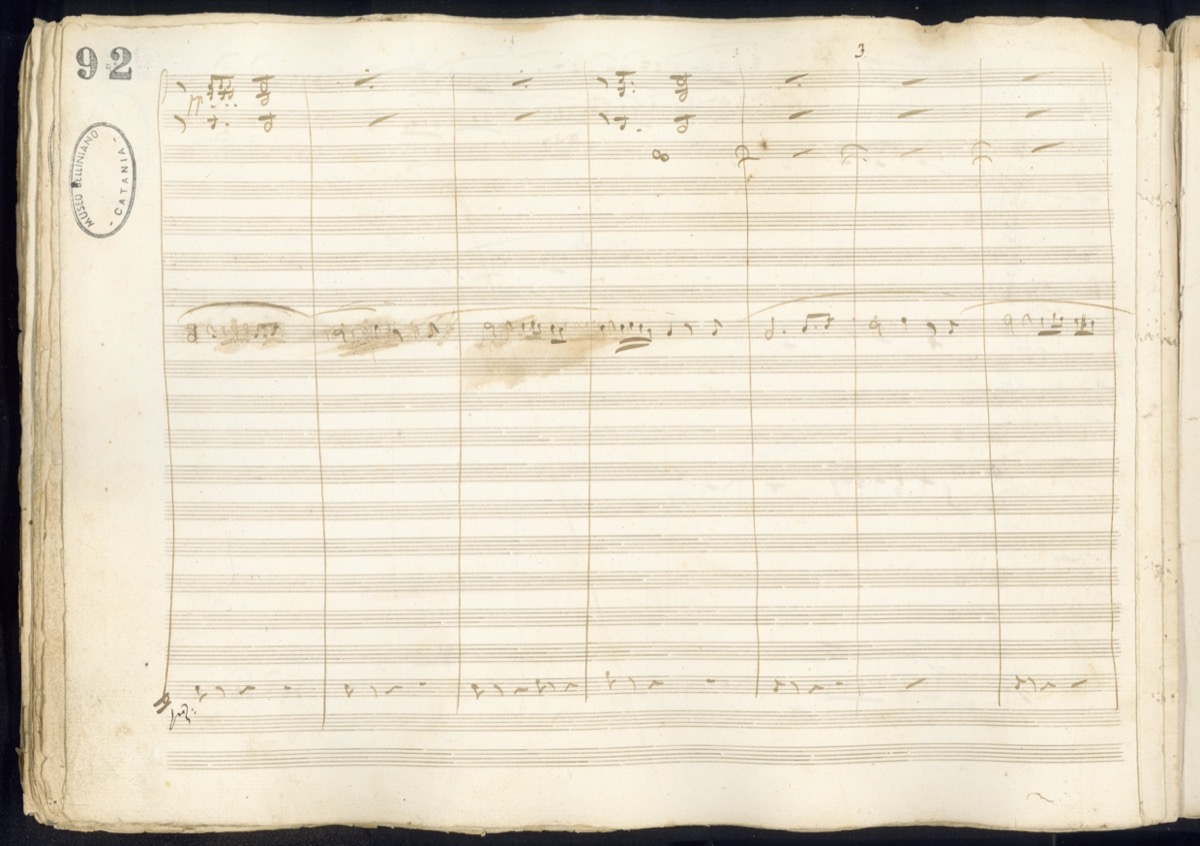 92
3
MUSEO BELLINIANO
- CATANIA -
8